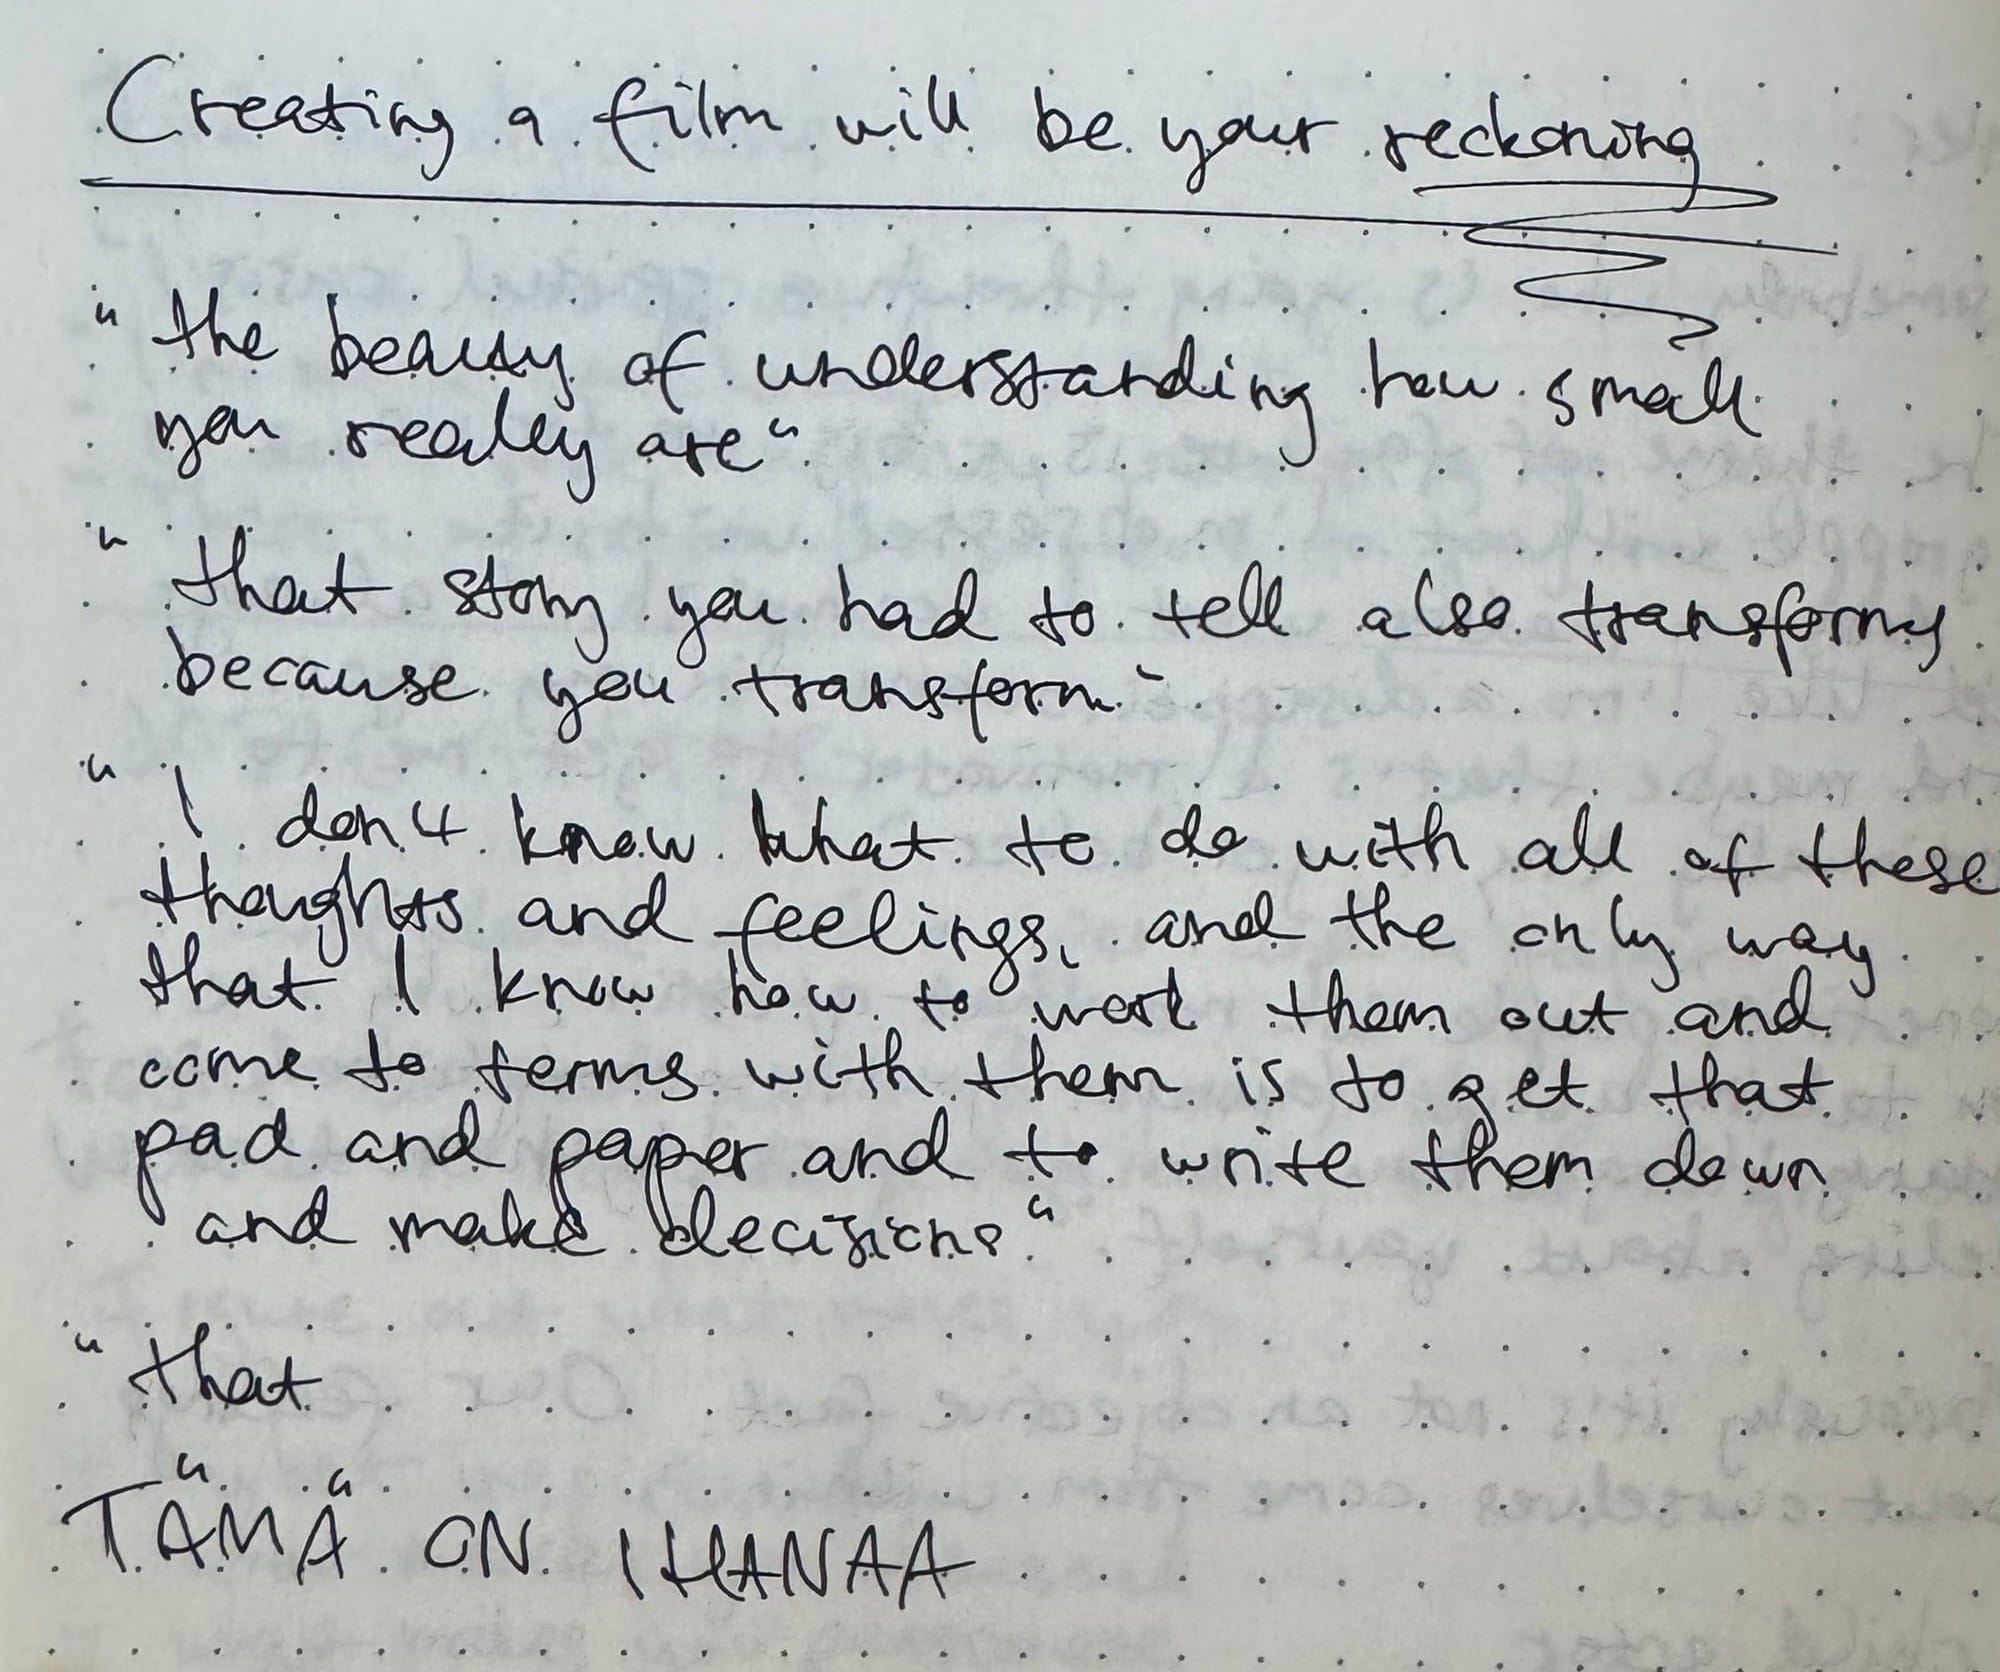 Creating a film will be your reckoning
"the beauty of understanding how small
you really are"
"that story you had to tell also transforms
because you transform"
"I don't know what to do with all of these
thoughts and feelings, and the only way
that I know how to work them out and
come to terms with them is to get that
pad and paper and to write them down
and make decisions"
"that
TÄMÄ ON IHANAA